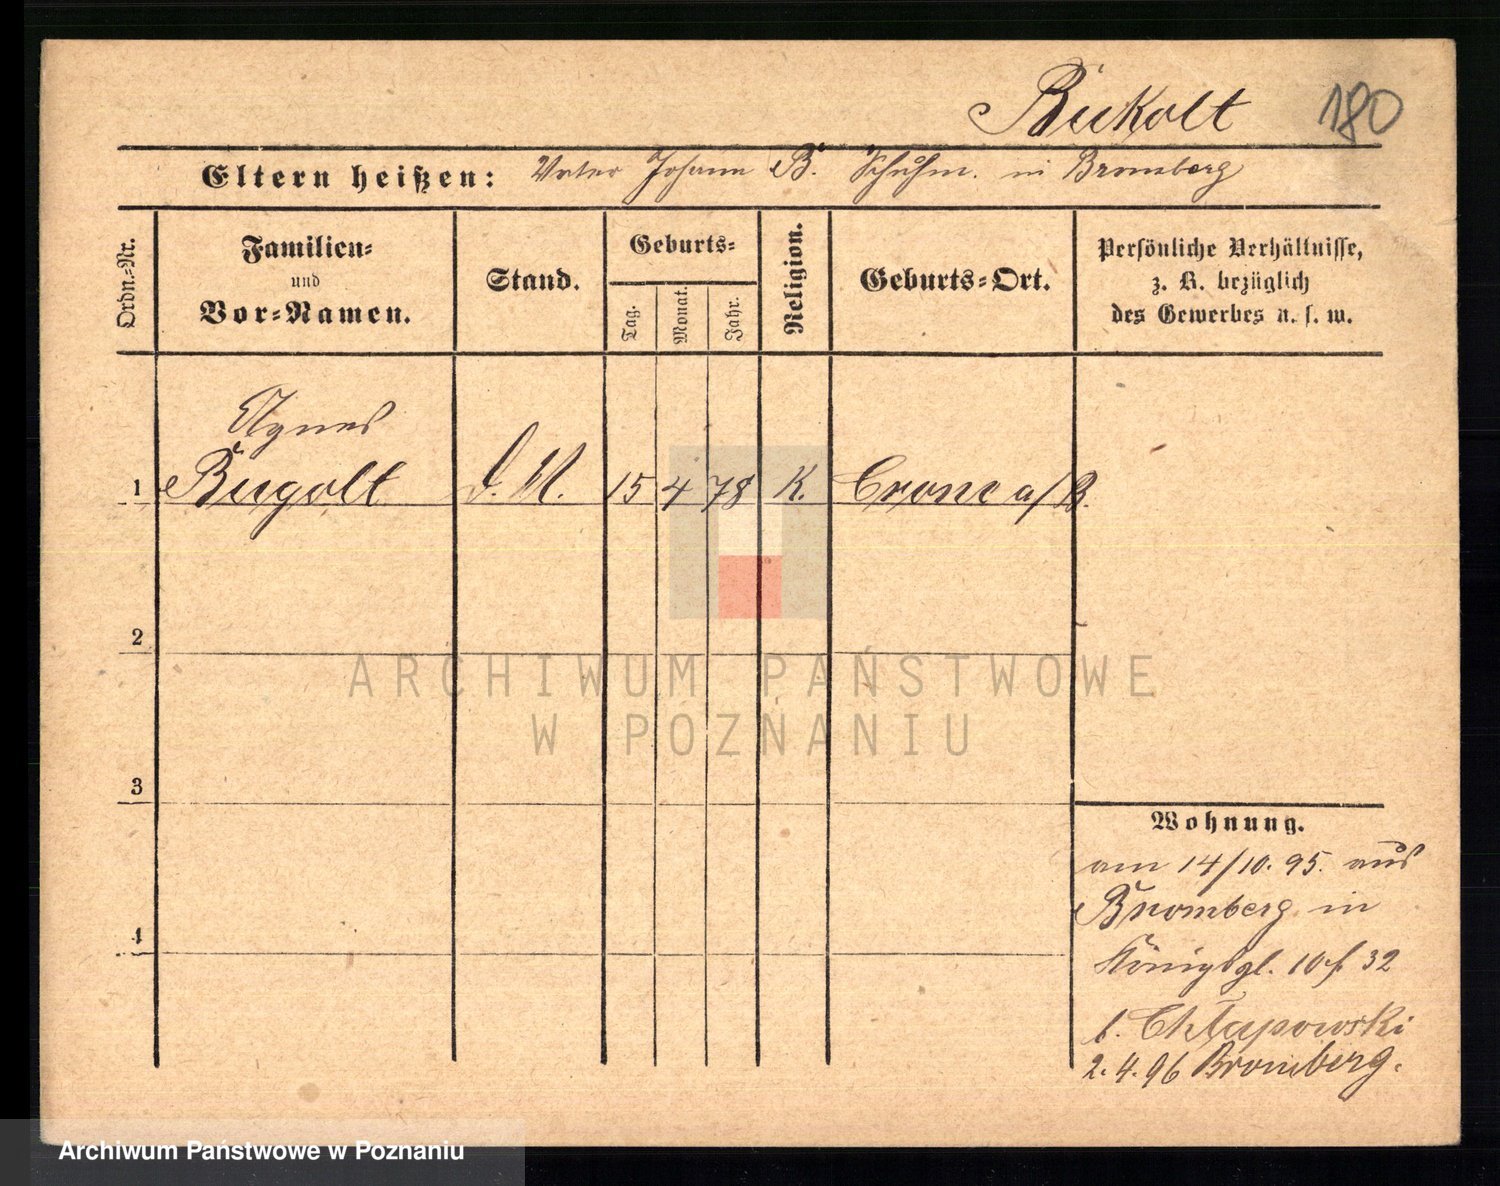 Bukolt 180
Eltern heißen: Vater Johann B. Schuhm. in Bromberg
Ordn.-Nr.
Familien-
und
Vor-Namen.
Stand.
Geburts-
Tag.
Monat.
Jahr.
Religion.
Geburts-Ort.
Persönliche Verhältnisse,
z. B. bezüglich
des Gewerbes u. s. w.
Agnes
1 Bugolt D. M. 15 4 78 K. Crone a/B.
2
3
4
Wohnung.
am 14/10. 95. aus
Bromberg in
Königsgl. 10 f. 32
b. Chłapowski
2. 4. 96 Bromberg.
ARCHIWUM PAŃSTWOWE
W POZNANIU
Archiwum Państwowe w Poznaniu